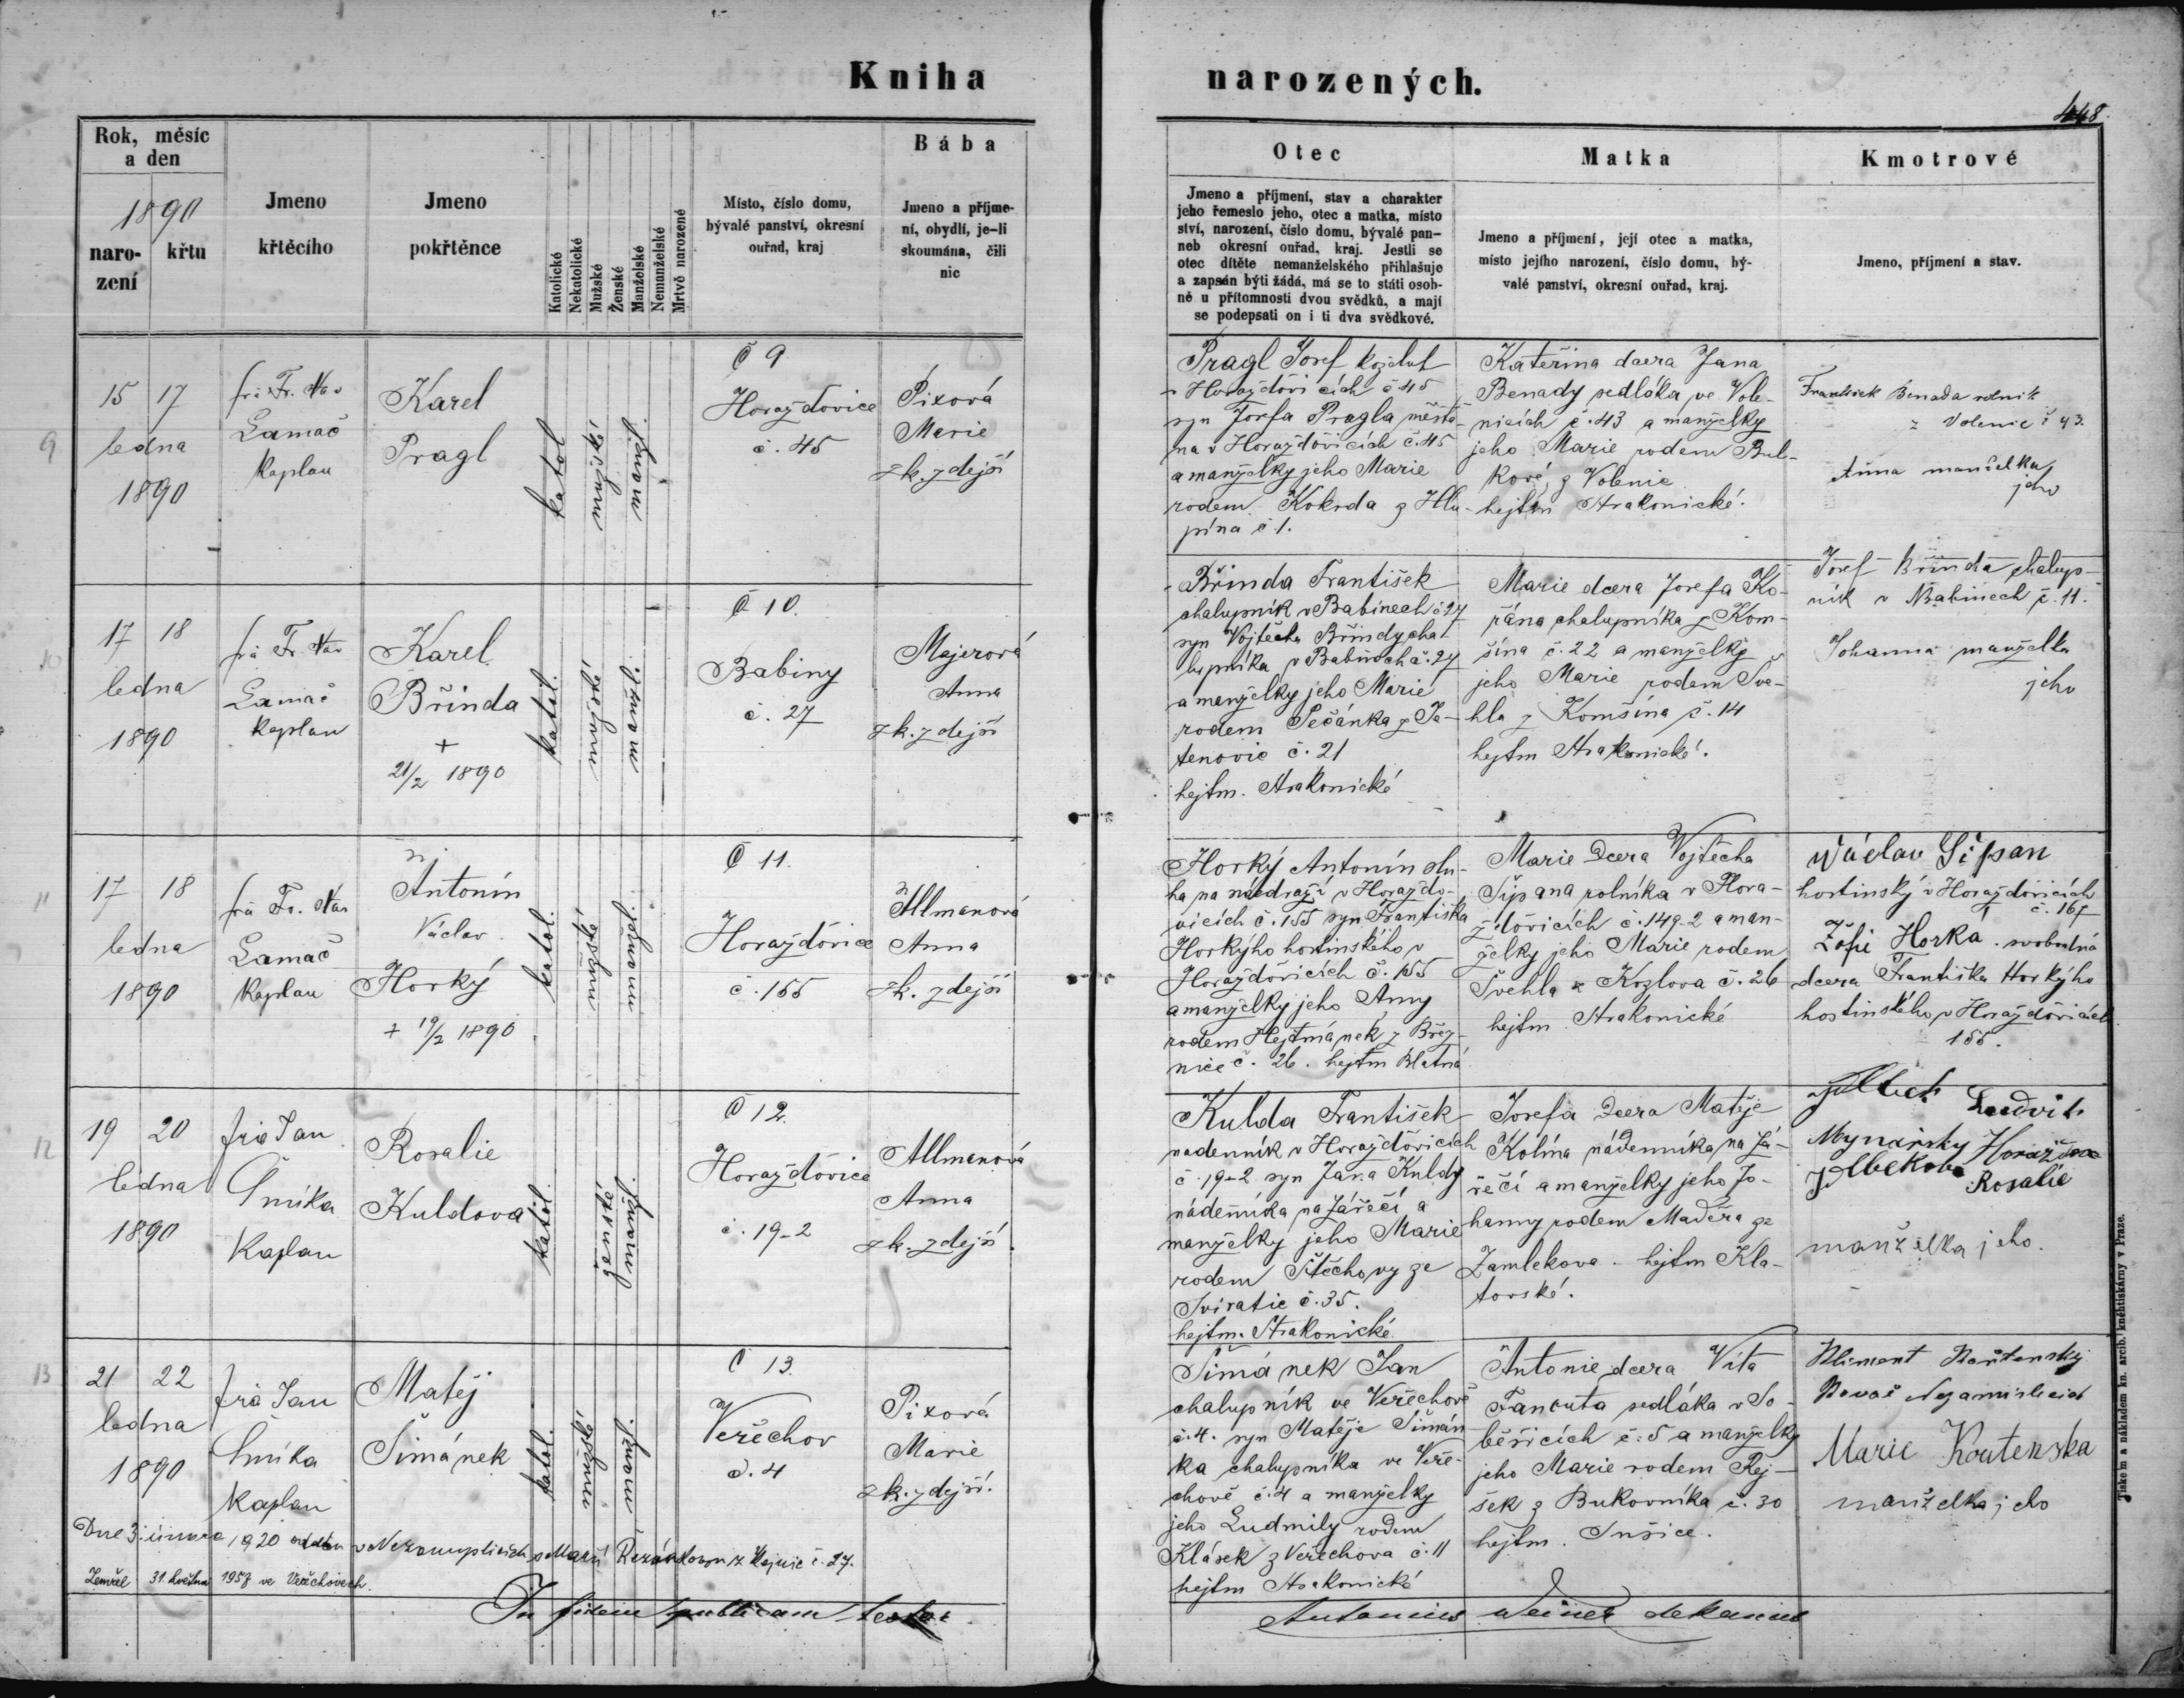 Kniha narozených.
448
Rok, měsíc
a den
1890
naro-
zení
křtu
Jmeno
křtěcího
Jmeno
pokřtěnce
Katolické
Nekatolické
Mužské
Ženské
Manželské
Nemanželské
Mrtvě narozené
Místo, číslo domu,
bývalé panství, okresní
ouřad, kraj
Bába
Jmeno a příjme-
ní, obydlí, je-li
skoumána, čili
nic
Otec
Jmeno a příjmení, stav a charakter
jeho řemeslo jeho, otec a matka, místo
ství, narození, číslo domu, bývalé pan-
neb okresní ouřad, kraj. Jestli se
otec dítěte nemanželského přihlašuje
a zapsán býti žádá, má se to státi osob-
ně u přítomnosti dvou svědků, a mají
se podepsati on i ti dva svědkové.
Matka
Jmeno a příjmení, její otec a matka,
místo jejího narození, číslo domu, bý-
valé panství, okresní ouřad, kraj.
Kmotrové
Jmeno, příjmení a stav.
9
15 17
ledna
1890
Lamač
Kaplan
Karel
Pragl
katol
mužské
manž.
Č 9
Horažďovice
č. 45
Pixová
Marie
zk. zdejší
Pragl Josef koželuh
v Horažďovicích č 45
syn Josefa Pragla měšťa-
na v Horažďovicích č. 45
a manželky jeho Marie
rodem Kokrda z Hlu-
pína č 1.
Kateřina dcera Jana
Benady sedláka ve Vole-
nicích č. 43 a manželky
jeho Marie rodem Bul-
kové, z Volenic
hejtm Strakonické.
František Benada rolník
z Volenic č 43.
Anna manželka
jeho
10
17 18
ledna
1890
Lamač
Kaplan
Karel
Břinda
+
21/2 1890
katol.
mužské
manž.
Č 10.
Babiny
č. 27
Majerová
Anna
zk. zdejší
Břinda František
chalupník v Babinech č 27
syn Vojtěcha Břindy chal
lupníka v Babinech č. 27
a manželky jeho Marie
rodem Pečánka z Ja-
tenovic č. 21
hejtm. Strakonické
Marie dcera Josefa Ko-
řána chalupníka z Kom-
šína č. 22 a manželky
jeho Marie rodem Sve-
hla z Komšína č. 14
hejtm Strakonické.
Josef Břinda chalup-
ník v Babinech č. 11.
Johanna manželka
jeho
11
17 18
ledna
1890
Lamač
Kaplan
Antonín
Václav
Horký
+ 19/2 1890
katol.
mužské
manž.
Č 11.
Horažďovice
č. 155
Allmanová
Anna
zk. zdejší
Horký Antonín slu-
ha na nádraží v Horažďo-
vicích č. 155 syn Františka
Horkýho hostinského v
Horažďovicích č. 155
a manželky jeho Anny
rodem Hejtmánek z Břez-
nice č. 26. hejtm Blatná
Marie dcera Vojtěcha
Šípana rolníka v Hora-
žďovicích č. 149-2 a man-
želky jeho Marie rodem
Švehla z Kozlova č. 26
hejtm Strakonické
Václav Šípan
hostinský v Horažďovicích
č. 167
Žofie Horka svobodná
dcera Františka Horkýho
hostinského v Horažďovicích
155.
12
19 20
ledna
1890
Jan
Kaplan
Rosalie
Kuldova
katol.
ženské
manž.
Č 12.
Horažďovice
č. 19-2
Allmanová
Anna
zk. zdejší
Kulda František
nadenník v Horažďovicích
č. 19-2 syn Jana Kuldy
nádenníka na Zářečí a
manželky jeho Marie
rodem Štěchovy ze
Sviratic č. 35.
hejtm. Strakonické
Josefa dcera Matěje
Kolína nádenníka na Zá-
řečí a manželky jeho Jo-
hanny rodem Maděra ze
Zamlekova hejtm Kla-
tovské.
Ludvik
Rosalie
manželka jeho.
13
21 22
ledna
1890
Jan
Kaplan
Matěj
Šimánek
katol.
mužské
manž.
Č 13.
Veřechov
č. 4
Pixová
Marie
zk. zdejší.
Šimánek Jan
chalupník ve Veřechově
č. 4. syn Matěje Šimán-
ka chalupníka ve Veře-
chově č. 4 a manželky
jeho Ludmily rodem
Klásek z Veřechova č. 11
hejtm Strakonické
Antonie dcera Víta
Fancuta sedláka v So-
běšicích č. 5 a manželky
jeho Marie rodem Rej-
šek z Bukovníka č. 30
hejtm. Sušice.
Kliment Koutenský
Kovář
Marie Koutenska
manželka jeho
Dne 3. února 1920 oddán v Nezamyslicích s Marií z Hejnic č. 27.
Zemřel 31. května 1957 ve Veřechovech.
In fidem publicam testor
Antonius Weiner dekanus
Tiskem a nákladem kn. arcib. knihtiskárny v Praze.